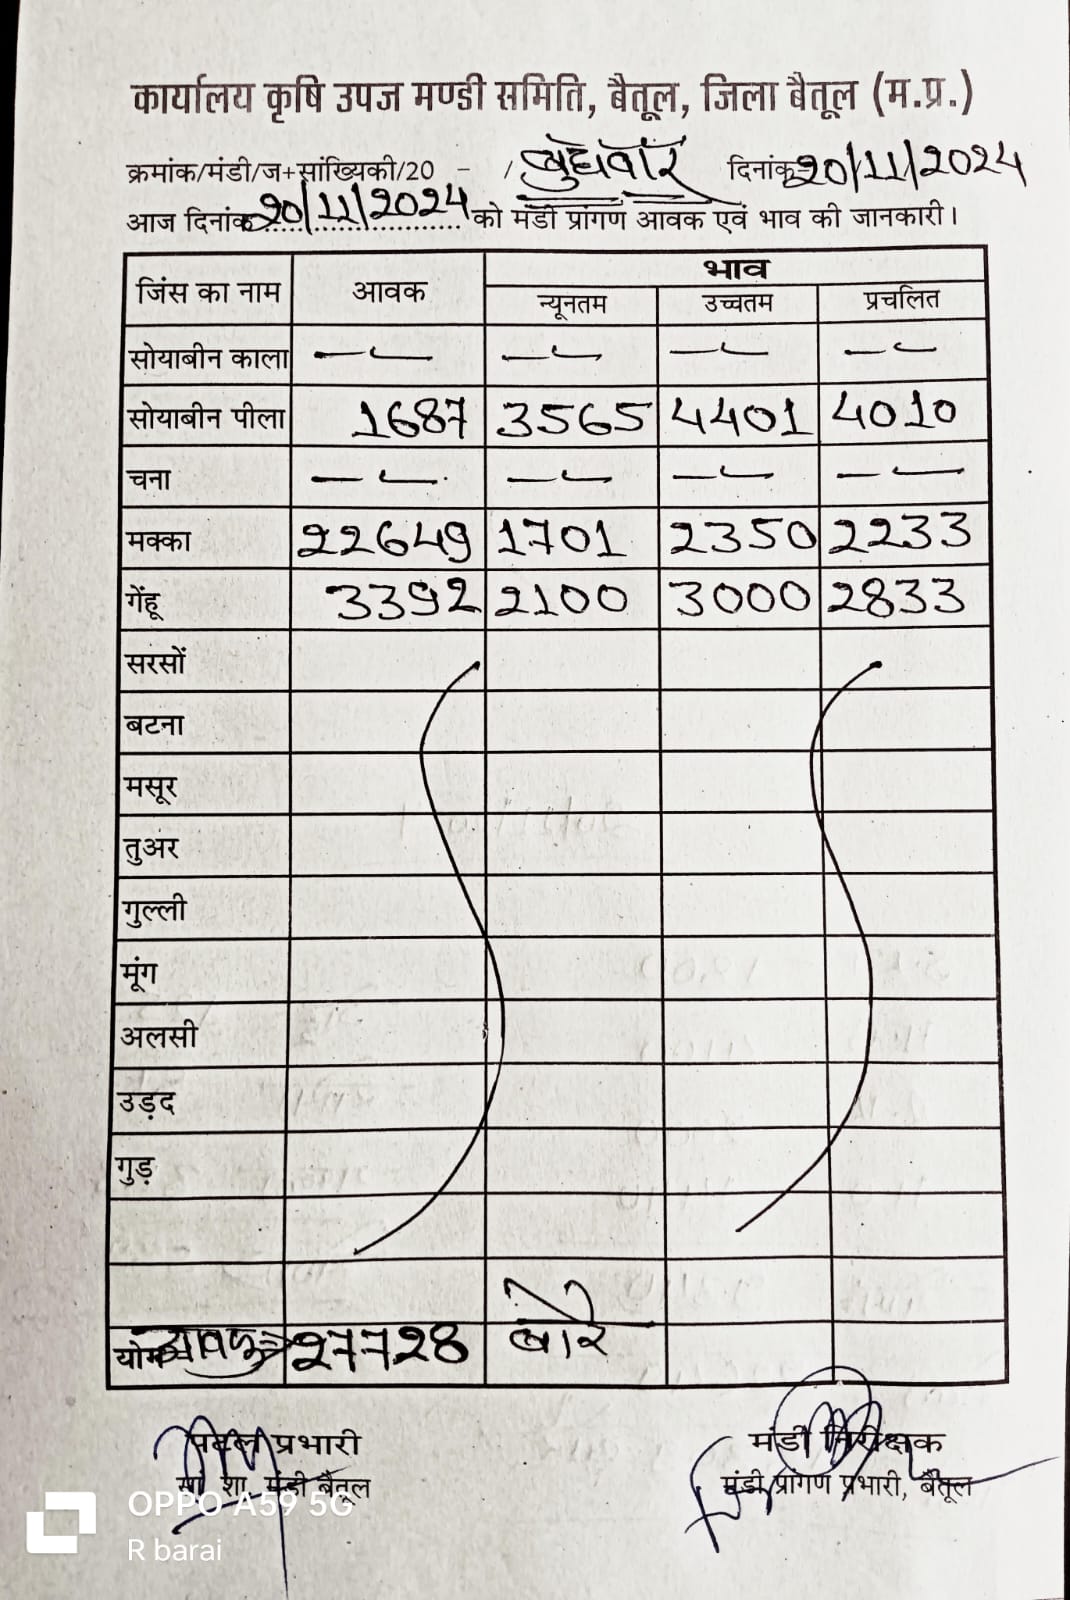 कार्यालय कृषि उपज मण्डी समिति, बैतूल, जिला बैतूल (म.प्र.)
क्रमांक/मंडी/ज+सांख्यिकी/20 - / बुधवार दिनांक 20/11/2024
आज दिनांक 20/11/2024 को मंडी प्रांगण आवक एवं भाव की जानकारी।
जिंस का नाम आवक भाव
न्यूनतम उच्चतम प्रचलित
सोयाबीन काला — — — —
सोयाबीन पीला 1687 3565 4401 4010
चना — — — —
मक्का 22649 1701 2350 2233
गेंहू 3392 2100 3000 2833
सरसों
बटना
मसूर
तुअर
गुल्ली
मूंग
अलसी
उड़द
गुड़
योग आवक 27728 बोरे
प्रभारी मंडी निरीक्षक
सां. शा. मंडी बैतूल मंडी प्रांगण प्रभारी, बैतूल
OPPO A59 5G
R barai